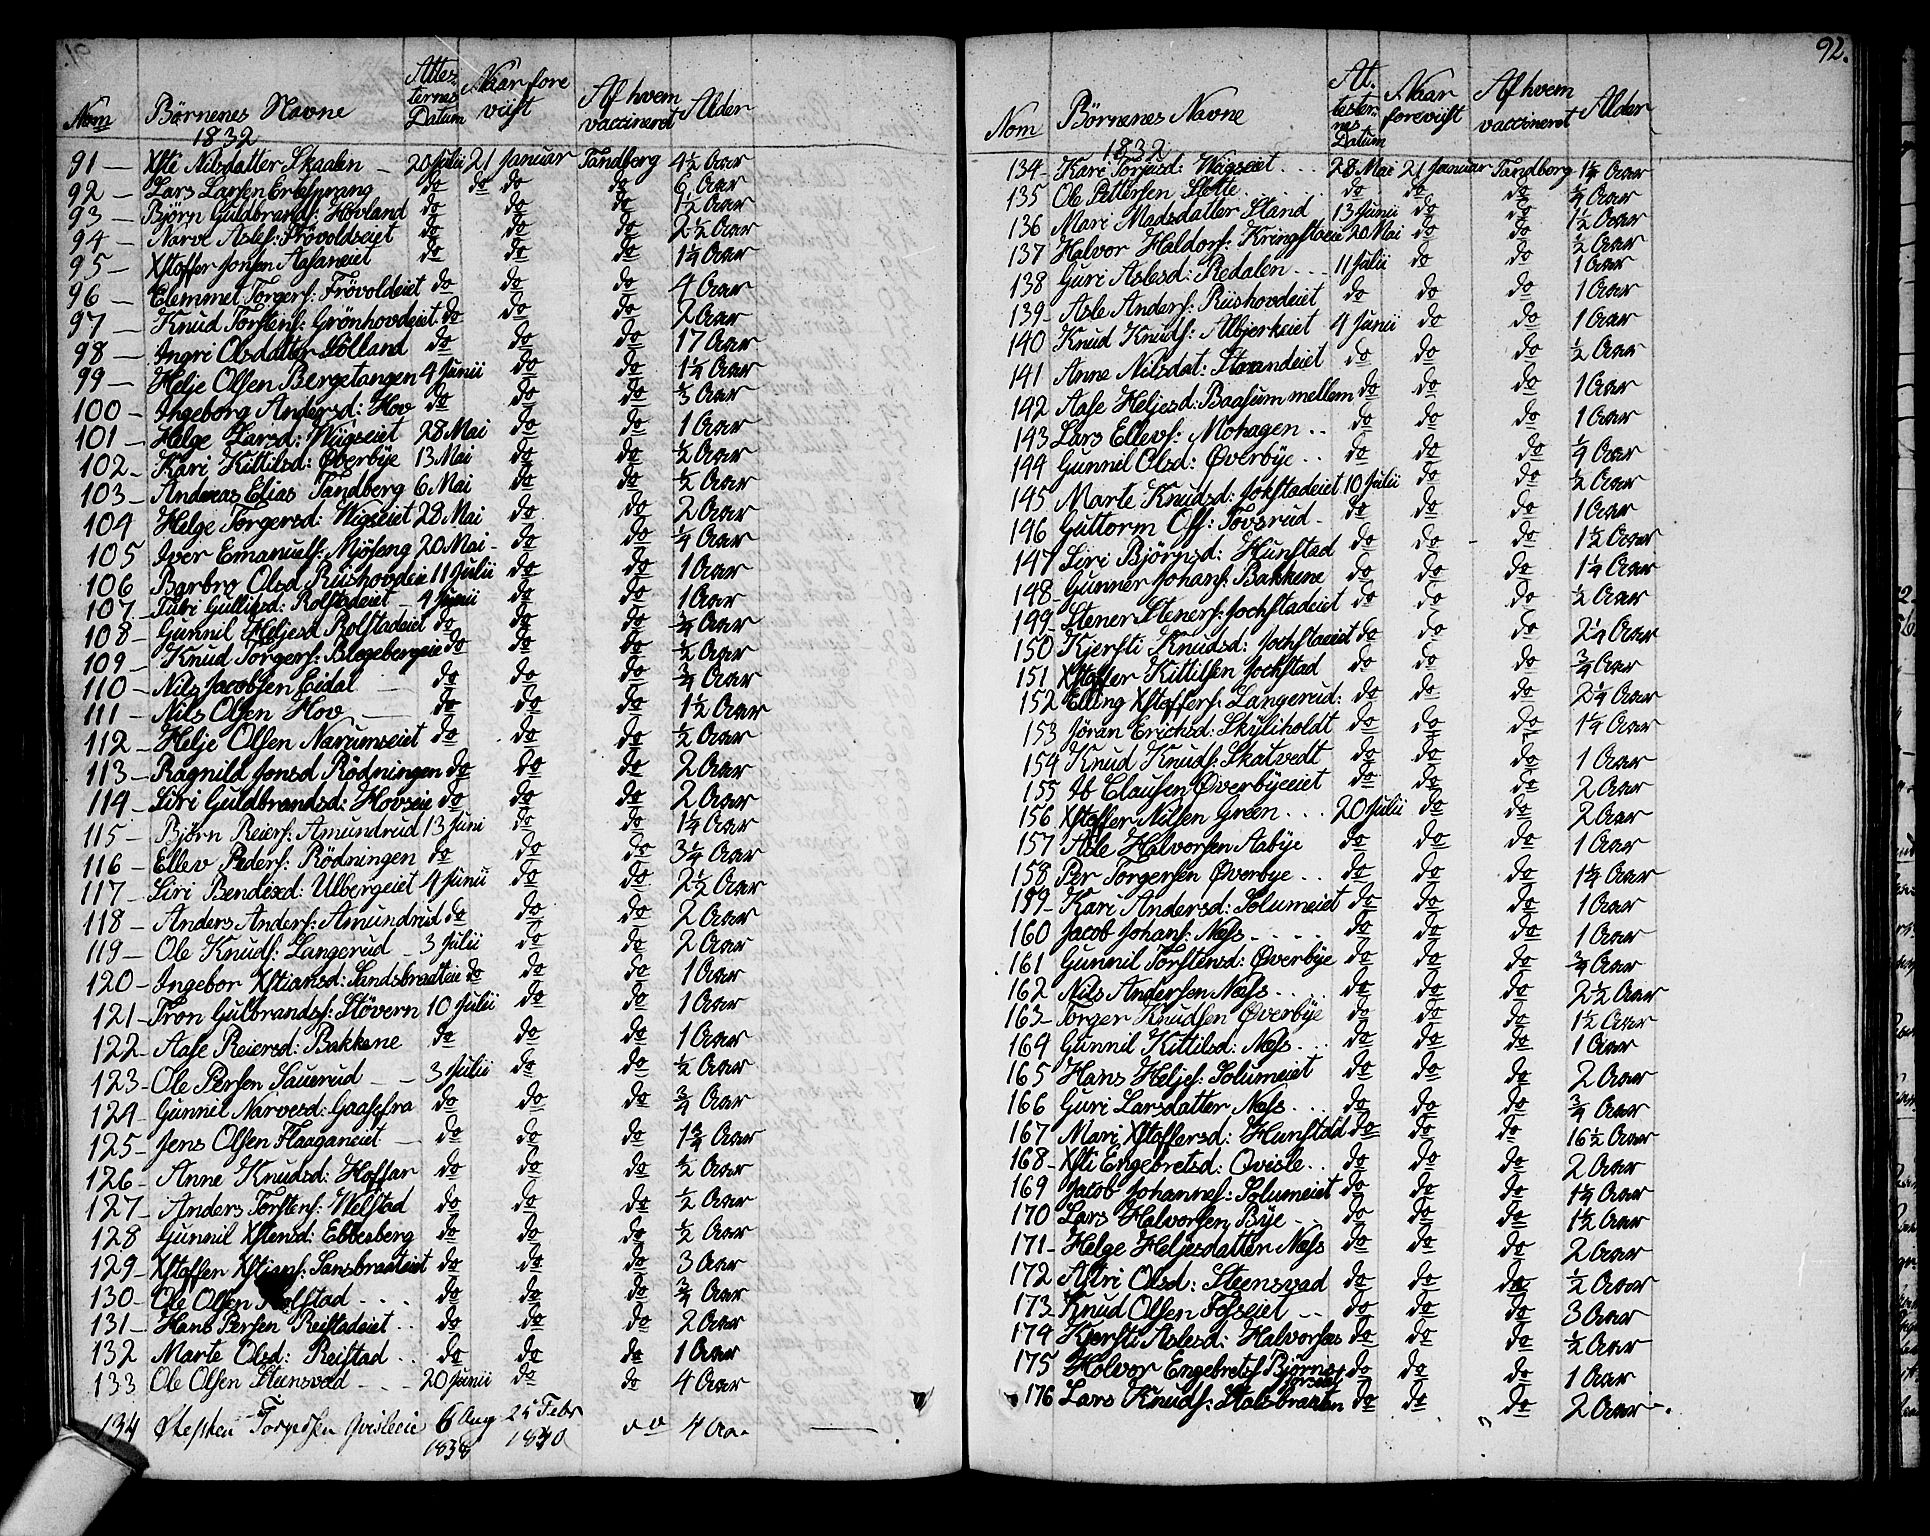 Nom Børnenes Navne 1832 Attesternes Datum Naar foreviist Af hvem vaccineret Alder
91 — Xste Nilsdatter Skaalen — 20 Julii 21 Januar Tandberg 4½ Aar
92 — Lars Larsen Ertesprang do do do do 6 Aar
93 — Bjørn Guldbrands: Hovland do do do 1½ Aar
94 — Narve Asles: Frövoldseiet do do do 2½ Aar
95 — Xstoffer Jonsen Aasaneiet do do do 1¼ Aar
96 — Elemmet Torgers: Frövoldeiet do do do 4 Aar
97 — Knud Torstens: Grönhovdeiet do do do 2 Aar
98 — Ingri Olsdatter Lölland do do do 17 Aar
99 — Helje Olsen Bergetangen 4 Junii do do 1¼ Aar
100 — Ingeborg Andersd: Hov do do do Aar
101 — Helge Larsd: Wiigseiet 28 Mai do do 1 Aar
102 — Kari Kittilsd: Øverbÿe 13 Mai do do ½ Aar
103 — Andreas Elias Tandberg 6 Mai do do ½ Aar
104 Helge Torgersd: Wigseiet 28 Mai do do 2 Aar
105 Iver Emanuels: Mjöseng 20 Mai do do ¼ Aar
106 Barbro Olsd Riishovdeie 11 Julii do do 1 Aar
107 Turi Gulliksd: Rolstadeiet — 4 Junii do do 1 Aar
108 — Gunnil Heljesd Rolstadeiet do do do ¾ Aar
109 — Knud Torgers: Blegebergeie do do do ½ Aar
110 — Nils Jacobsen Eidal — do do do ¾ Aar
111 — Nils Olsen Hov — do do do 1½ Aar
112 — Helje Olsen Narumseiet do do do ½ Aar
113 — Ragnild Jonsd Rödningen do do do 2 Aar
114 — Siri Guldbrandsd: Hovseie do do do 2 Aar
115 — Björn Reiers: Amundrud 13 Juni do do 1¼ Aar
116 — Ellev Peders: Rödningen do do do 3¼ Aar
117 — Siri Bendixd: Ulbergeiet 4 Junii do do 2½ Aar
118 — Anders Anders: Amundrud do do do 2 Aar
119 — Ole Knuds: Langerud — 3 Julii do do 2 Aar
120 — Ingebor Xstiansd: Sandsbraateie do do do 1 Aar
121 — Tron Gulbrands: Stövern 10 Julii do do 1 Aar
122 — Aase Reiersd: Bakkene do do do 1 Aar
123 — Ole Persen Sauerud — 3 Julii do do ½ Aar
124 — Gunnil Narvesd: Gaasefra do do do ¾ Aar
125 — Jens Olsen Flaaganeiet — do do do 1¾ Aar
126 — Anne Knudsd: Hoffar do do do ½ Aar
127 — Anders Torstens: Welstad do do do ½ Aar
128 Gunnil Xstensd: Ebbesberg do do do ½ Aar
129 — Xstoffen Xstians: Sansbraateiet do do do 3 Aar
130 — Ole Olsen Rolstad . . . do do do ¾ Aar
131 — Hans Persen Reistadeiet . . do do do 2 Aar
132 Marte Olsd: Reistad . . do do do 1 Aar
133 Ole Olsen Steensvad . . . 20 Junii do do 4 Aar
134 Torgersen 6 Aug 1838 25 Febr 1840 4 Aa.
92.
Nom Børnenes Navne 1832 Attesternes Datum Naar foreviist Af hvem vaccineret Alder
134 — Kari Torjusd: Wigseiet . . . 28 Mai 21 Januar Tandberg 1¼ Aar
135 Ole Pettersen Slette . . . . do do do ¾ Aar
136 Mari Madsdatter Stand 13 Junii do do 1½ Aar
137 Halvor Haldors: Kringstaeie 20 Mai do do ½ Aar
138 Guri Aslesd: Redalen . . . 11 Julii do do 1 Aar
139 — Asle Anders: Riishovdeiet do do do 1 Aar
140 Knud Knuds: Albjerkeiet 4 Junii do do 1 Aar
141 Anne Nilsdat: Strandeiet do do do ½ Aar
142 Aase Heljesd: Baaseum mellem do do do 1 Aar
143 Lars Ellevs: Mohagen . . do do do 1 Aar
144 Gunnil Olsd: Øverbÿe . . do do do ¼ Aar
145 Marte Knudsd: Jokstadeiet 10 Julii do do ½ Aar
146 Guttorm Ols: Tovsrud — do do do 1 Aar
147 Siri Björnsd: Hunstad do do do 1½ Aar
148 — Gunner Johans: Bakkene do do do 1¼ Aar
149 — Stener Steners: Jochstadeiet do do do ½ Aar
150 Kjersti Knudsd: Jochstaeiet do do do 2¼ Aar
151 Xstoffer Kittilsen Jochstad do do do ¾ Aar
152 Elling Xstoffers: Langerud: do do do 2¼ Aar
153 Jöran Erichsd: Skÿliholdt do do do 1¼ Aar
154 Knud Knuds: Skatvedt do do do 1 Aar
155 Ib Clausen Øverbÿeeiet do do do 2 Aar
156 Xstoffer Nilsen Green . . . 20 Julii do do 2 Aar
157 Asle Halvorsen Aabÿe do do do 1 Aar
158 Per Torgersen Øverbye . . do do do 1¼ Aar
159 — Kari Andersd: Solumeiet do do do 1 Aar
160 Jacob Johans: Næss . . . . do do do 1 Aar
161 Gunnil Torstensd: Øverbÿe do do do ¾ Aar
162 Nils Andersen Næss . . . do do do 2½ Aar
163 — Torger Knudsen Øverbÿe do do do 1½ Aar
164 Gunnil Kittilsd: Næss . . . do do do 1 Aar
165 Hans Heljes: Solumeiet do do do 2 Aar
166 Guri Larsdatter Næss . . . do do do ¾ Aar
167 Mari Xstoffersd: Hunstad do do do 16½ Aar
168 — Xsti Engebretsd: Qvisle . . do do do 2 Aar
169 Jacob Johannes: Solumeiet do do do 1¼ Aar
170 Lars Halvorsen Bÿe . . do do do 1½ Aar
171 — Helge Heljesdatter Næss do do do 2 Aar
172 Astri Olsd: Steensvad do do do ½ Aar
173 — Knud Olsen Fosseiet . . do do do 3 Aar
174 Kjersti Aslesd: Halvorsøs do do do ½ Aar
175 Holvor Engebrets Björnstørseiet do do do 1 Aar
176 Lars Knuds: Stalsbraaten do do do 2 Aar